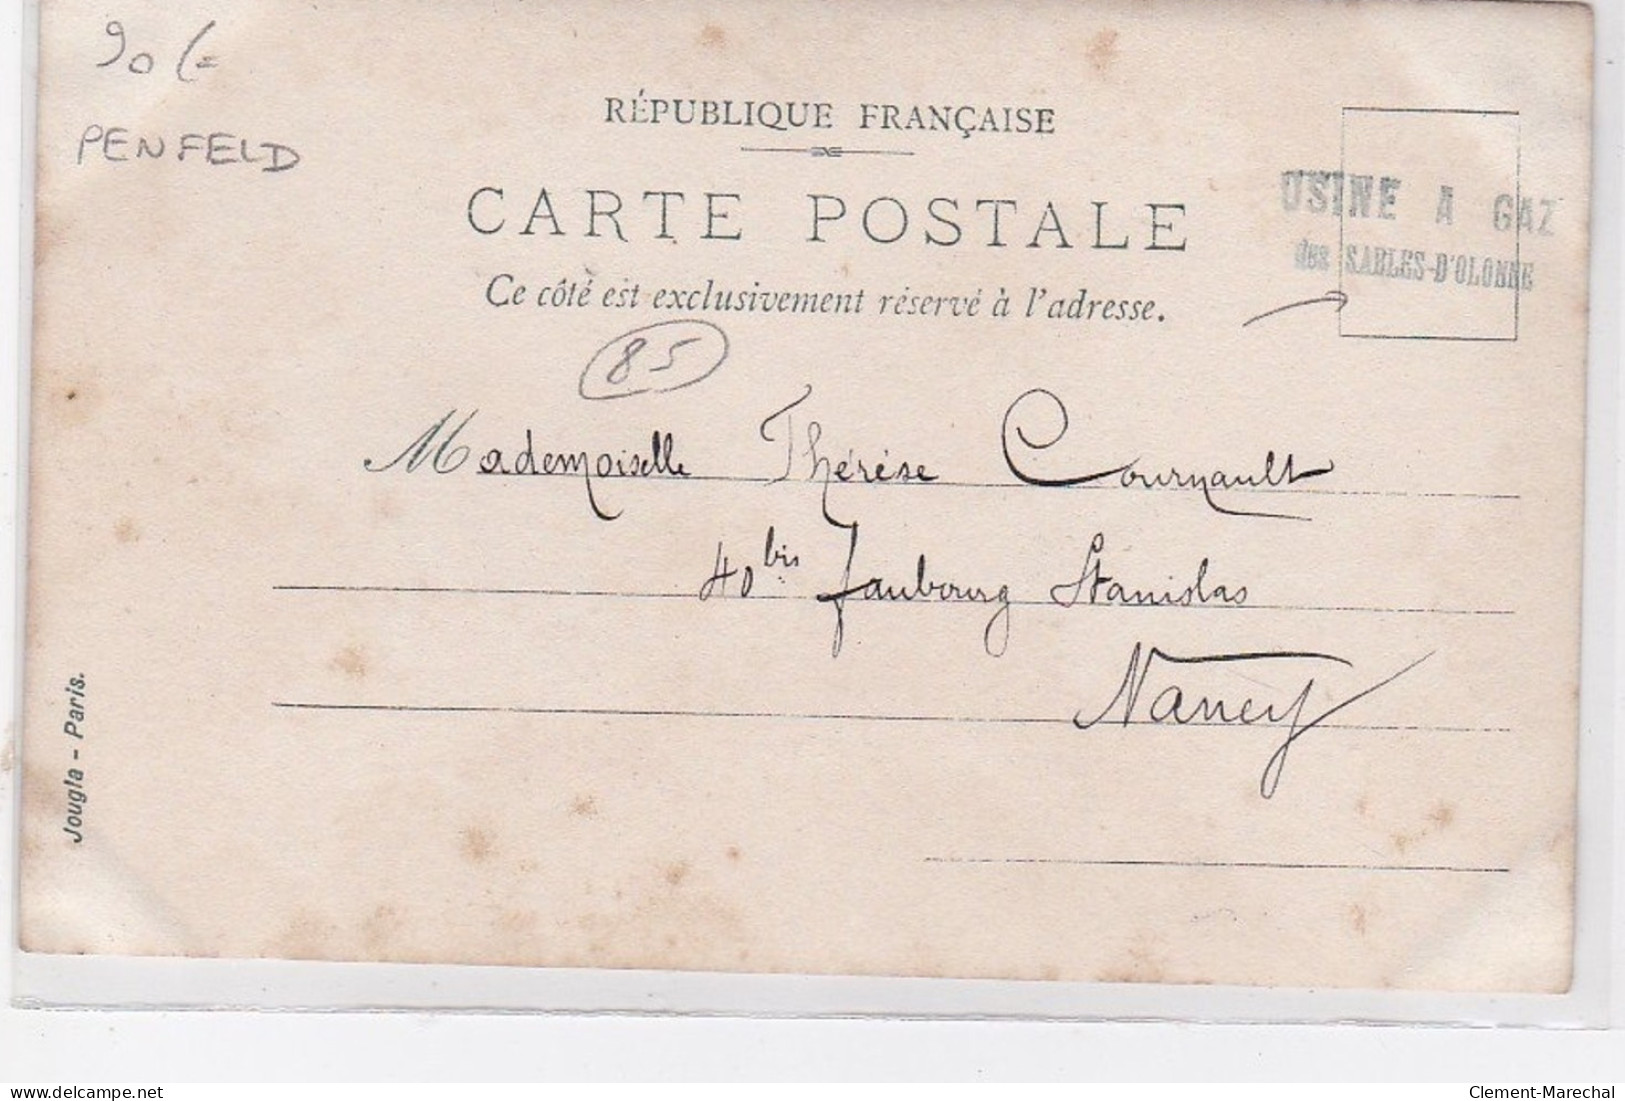 90 (=
PENFELD
RÉPUBLIQUE FRANÇAISE
CARTE POSTALE
Ce côté est exclusivement réservé à l'adresse.
USINE A GAZ
des SABLES-D'OLONNE
85
Mademoiselle Thérèse Cournault
40 bis faubourg Stanislas
Nancy
Jougla - Paris.
www.delcampe.net
Clement-Marechal